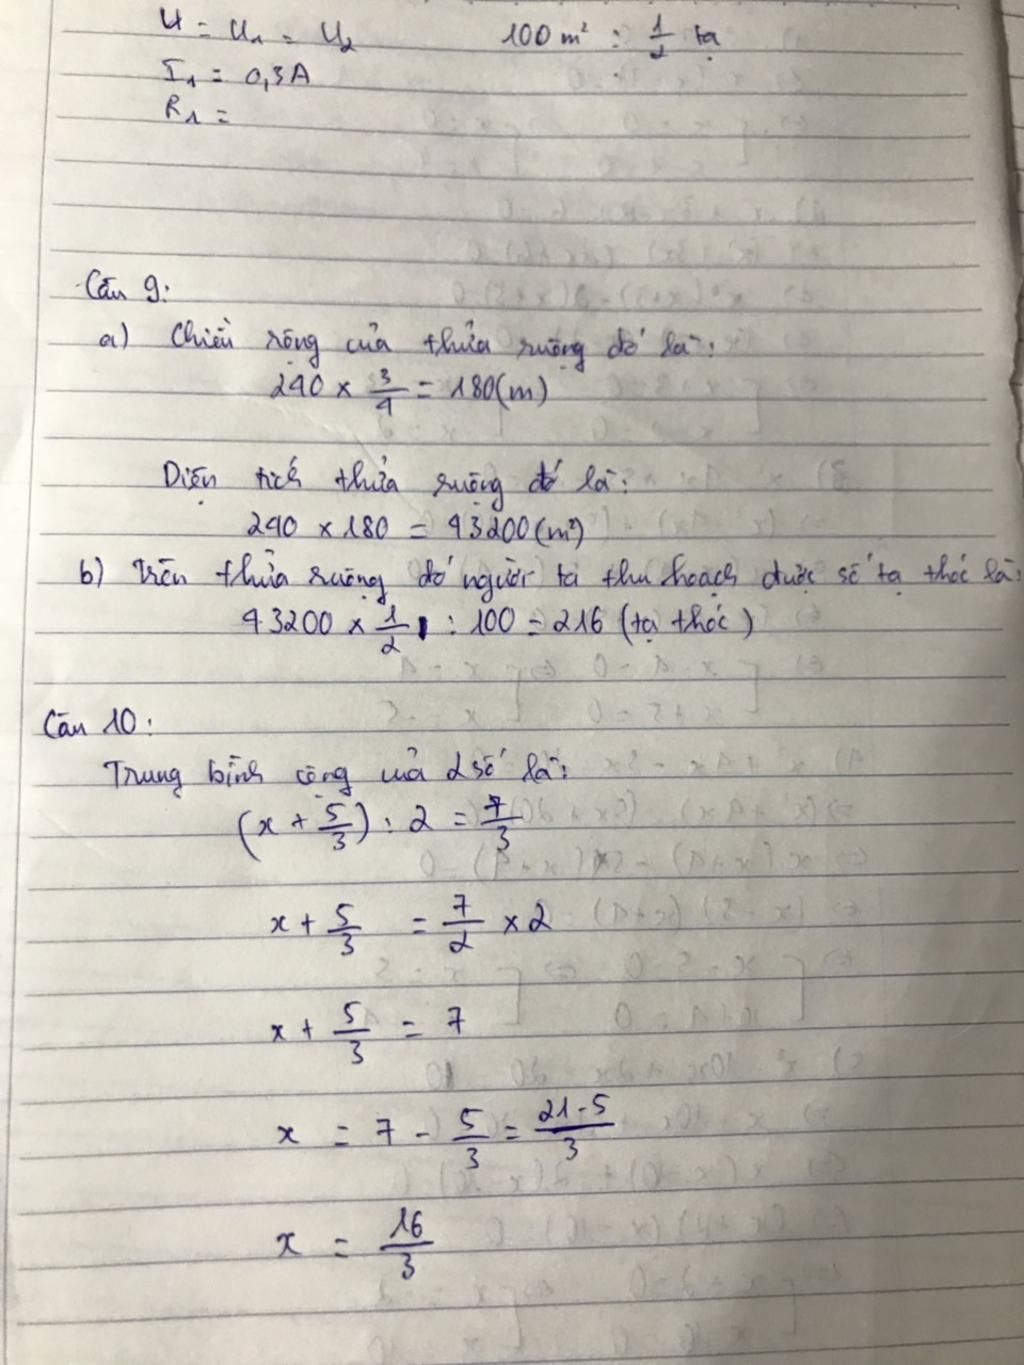 U = U1 = U2
100 m² : 1/2 tạ
I1 = 0,3A
R1 =
Câu 9:
a) Chiều rộng của thửa ruộng đó là:
240 x 3/4 = 180(m)
Diện tích thửa ruộng đó là:
240 x 180 = 43200(m²)
b) Trên thửa ruộng đó người ta thu hoạch được số tạ thóc là:
43200 x 1/2 : 100 = 216 (tạ thóc)
Câu 10:
Trung bình cộng của 2 số là:
(x + 5/3) : 2 = 7/3
x + 5/3 = 7/2 x 2
x + 5/3 = 7
x = 7 - 5/3 = 21-5/3
x = 16/3